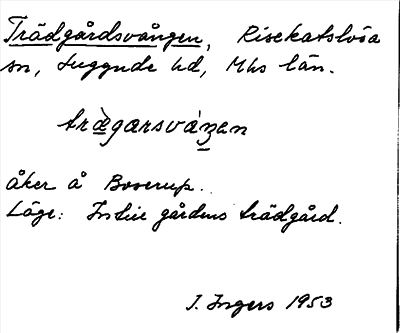 Trädgårdsvången, Risekatslösa
sn, Luggude hd, Mhs län.
træ̀garsváŋan
åker å Boserup.
Läge: Intill gårdens trädgård.
I. Ingers 1953